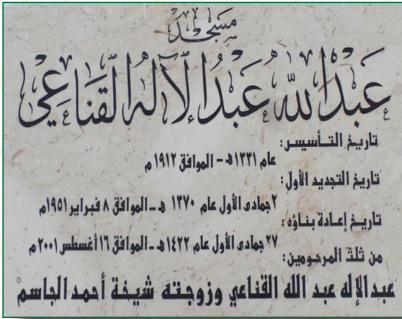 مسجد
عبدالله عبدالإله القناعي
تاريخ التأسيس:
عام ١٣٣١هـ - الموافق ١٩١٢م
تاريخ التجديد الأول:
٢جمادى الأول عام ١٣٧٠ هـ - الموافق ٨ فبراير ١٩٥١م
تاريخ إعادة بناؤه:
٢٧ جمادى الأول عام ١٤٢٢ هـ - الموافق ١٦ أغسطس ٢٠٠١م
من ثلث المرحومين:
عبدالإله عبد الله القناعي وزوجته شيخة أحمد الجاسم